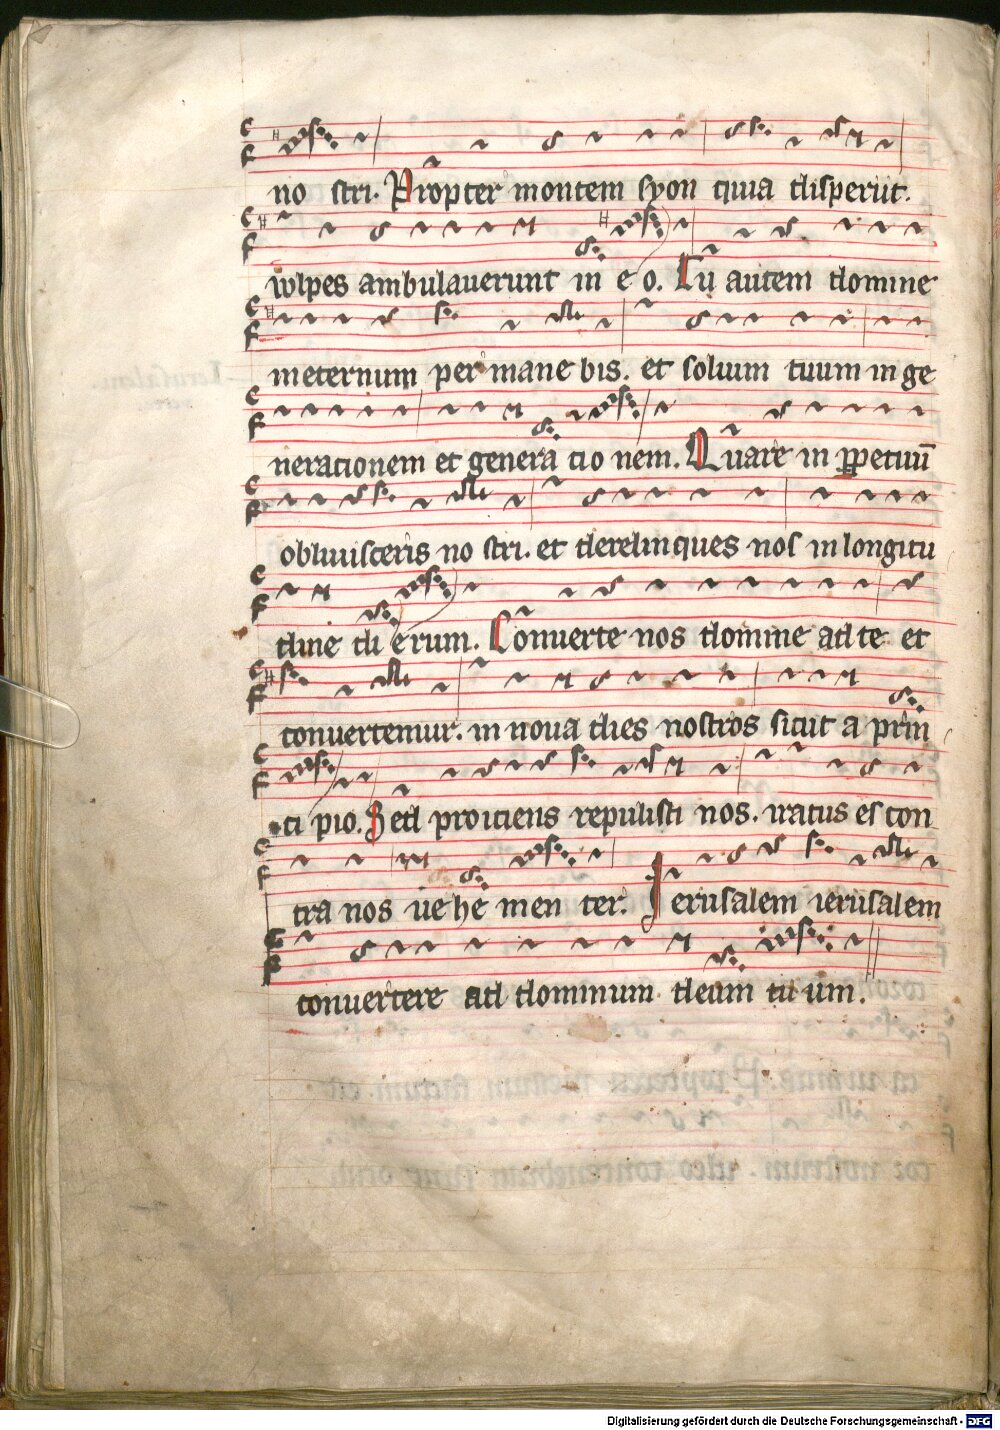 no stri. Propter montem syon quia disperiit.
wlpes ambulauerunt in e o. Tu autem domine
ineternum permane bis. et solium tuum in ge
neracionem et genera cio nem. Quare in ꝑpetuū
obliuisceris no stri. et derelinques nos in longitu
dine di erum. Conuerte nos domine ad te et
conuertemur. in noua dies nostros sicut a prin
ci pio. Sed proiciens repulisti nos. iratus es con
tra nos ue he men ter. Jerusalem ierusalem
conuertere ad dominum deum tu um.
Digitalisierung gefördert durch die Deutsche Forschungsgemeinschaft - DFG